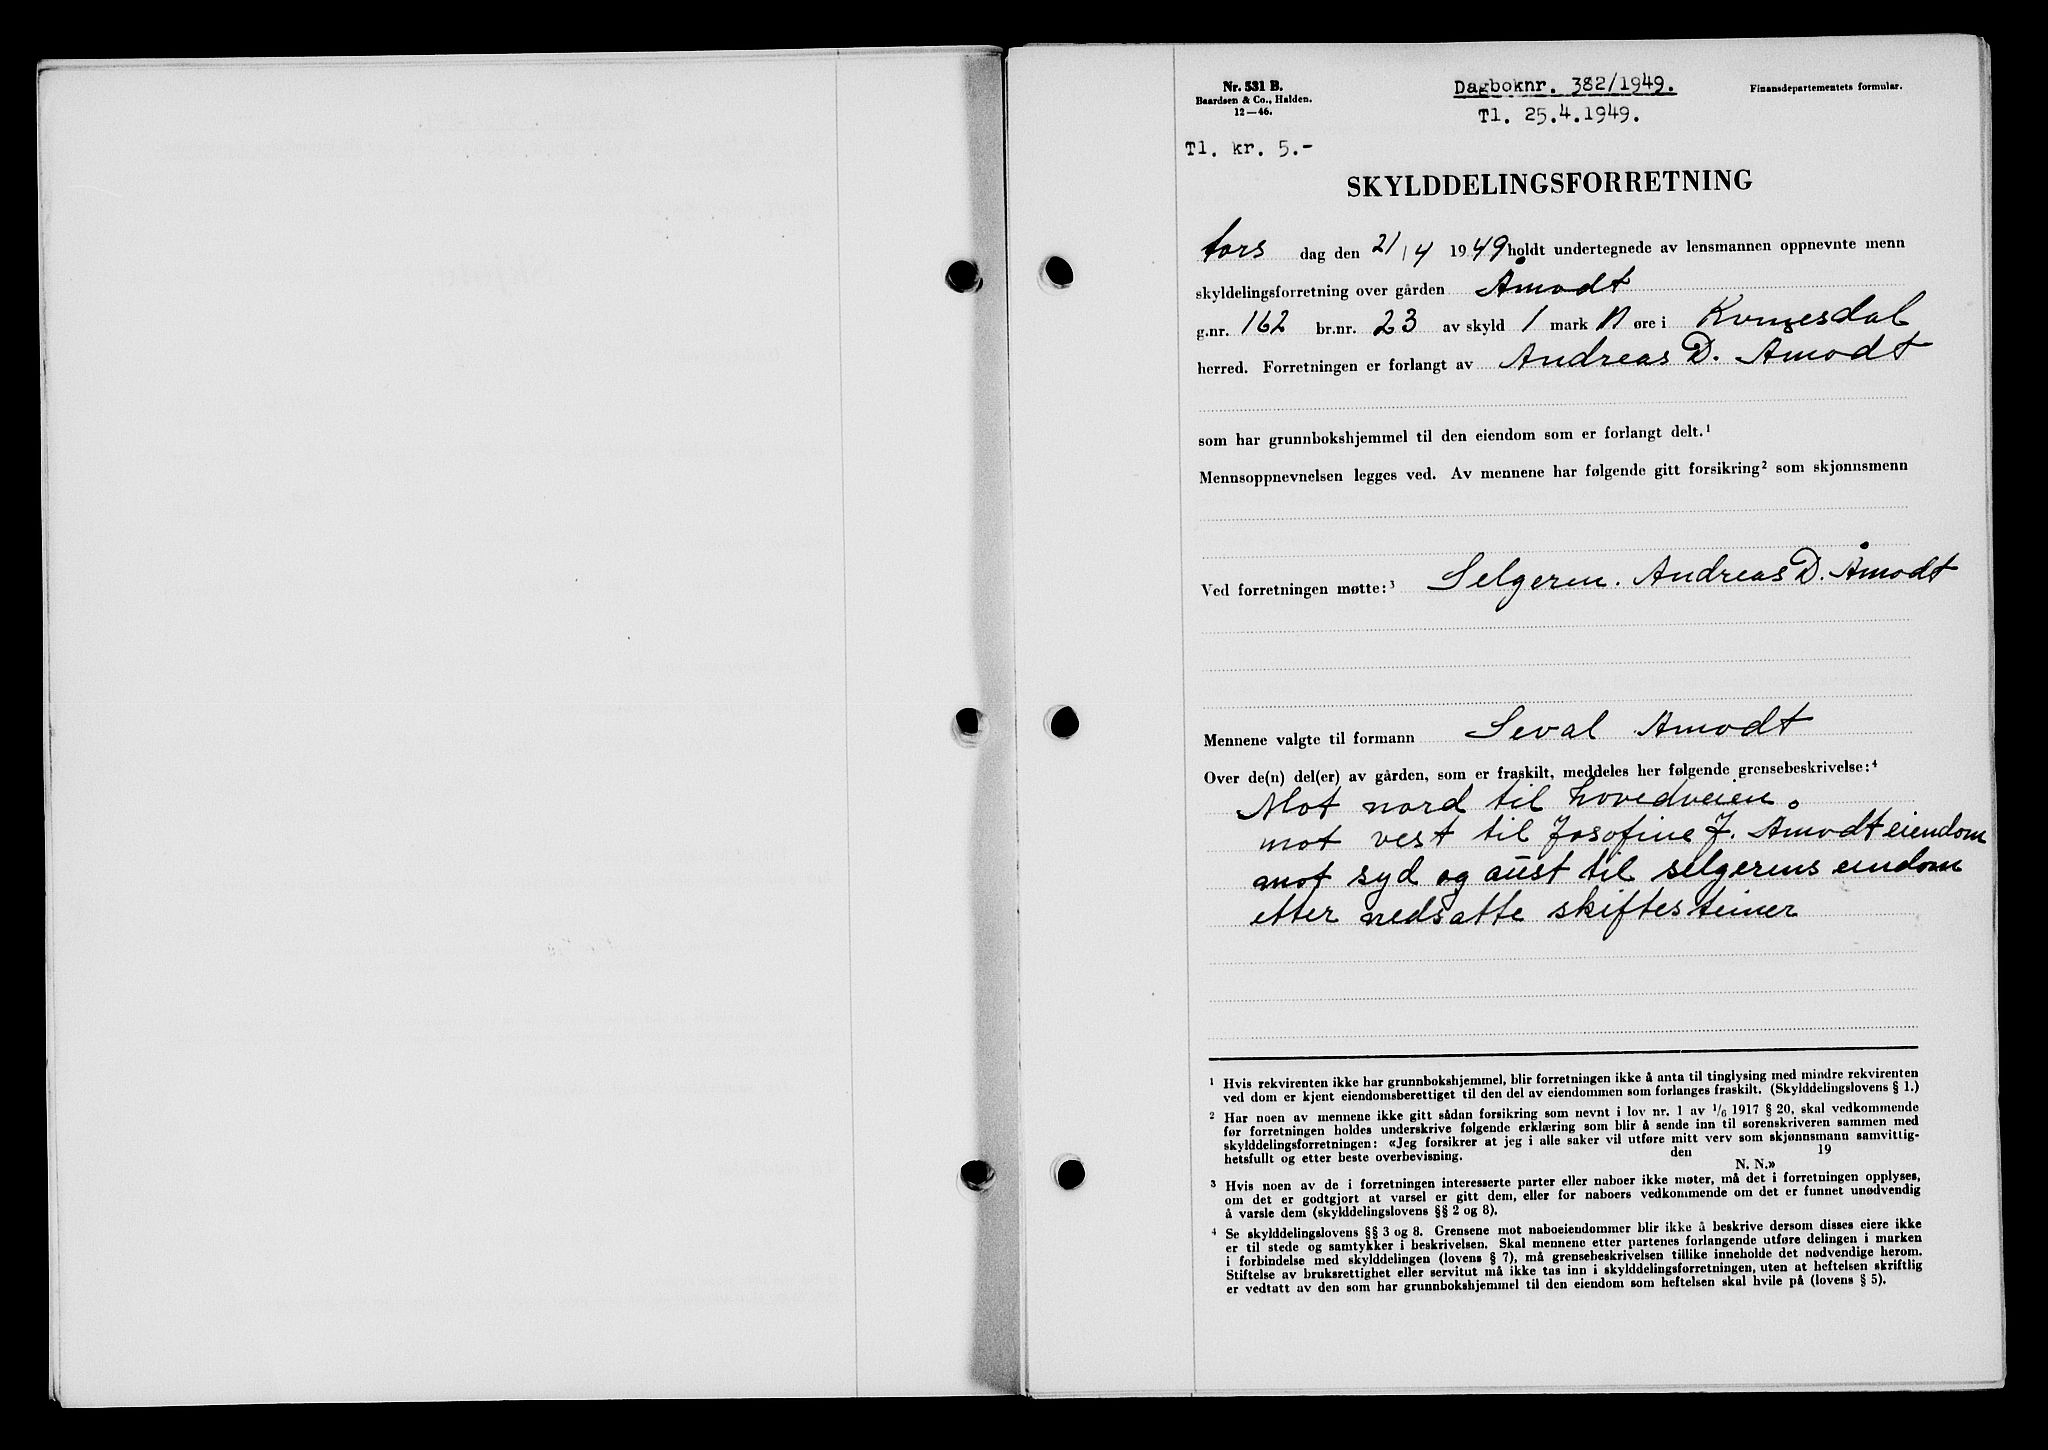 Nr. 531 B.
Baardsen & Co., Halden.
12—46.
Dagboknr. 382/1949.
Tl. 25.4.1949.
Finansdepartementets formular.
Tl. kr. 5.-
SKYLDDELINGSFORRETNING
tors dag den 21/4 1949 holdt undertegnede av lensmannen oppnevnte menn
skyldelingsforretning over gården Åmodt
g.nr. 162 br.nr. 23 av skyld 1 mark 11 øre i Kvinesdal
herred. Forretningen er forlangt av Andreas D. Amodt
som har grunnbokshjemmel til den eiendom som er forlangt delt.¹
Mennsoppnevnelsen legges ved. Av mennene har følgende gitt forsikring² som skjønnsmenn
Ved forretningen møtte:³ Selgeren. Andreas D. Åmodt
Mennene valgte til formann Seval Amodt
Over de(n) del(er) av gården, som er fraskilt, meddeles her følgende grensebeskrivelse:⁴
Mot nord til hovedveien.
mot vest til Josofine J. Amodt eiendom
mot syd og aust til selgerens eiendom
etter nedsatte skiftesteiner
¹ Hvis rekvirenten ikke har grunnbokshjemmel, blir forretningen ikke å anta til tinglysing med mindre rekvirenten
ved dom er kjent eiendomsberettiget til den del av eiendommen som forlanges fraskilt. (Skylddelingslovens § 1.)
² Har noen av mennene ikke gitt sådan forsikring som nevnt i lov nr. 1 av 1/6 1917 § 20, skal vedkommende
før forretningen holdes underskrive følgende erklæring som blir å sende inn til sorenskriveren sammen med
skylddelingsforretningen: «Jeg forsikrer at jeg i alle saker vil utføre mitt verv som skjønnsmann samvittig-
hetsfullt og etter beste overbevisning. den 19
N. N.»
³ Hvis noen av de i forretningen interesserte parter eller naboer ikke møter, må det i forretningen opplyses,
om det er godtgjort at varsel er gitt dem, eller for naboers vedkommende om det er funnet unødvendig
å varsle dem (skylddelingslovens §§ 2 og 8).
⁴ Se skylddelingslovens §§ 3 og 8. Grensene mot naboeiendommer blir ikke å beskrive dersom disses eiere ikke
er til stede og samtykker i beskrivelsen. Skal mennene etter partenes forlangende utføre delingen i marken
i forbindelse med skylddelingen (lovens § 7), må grensebeskrivelsen tillike inneholde det nødvendige herom.
Stiftelse av bruksrettighet eller servitut må ikke tas inn i skylddelingsforretningen, uten at heftelsen skriftlig
er vedtatt av den som har grunnbokshjemmel til den eiendom som heftelsen skal hvile på (lovens § 5).